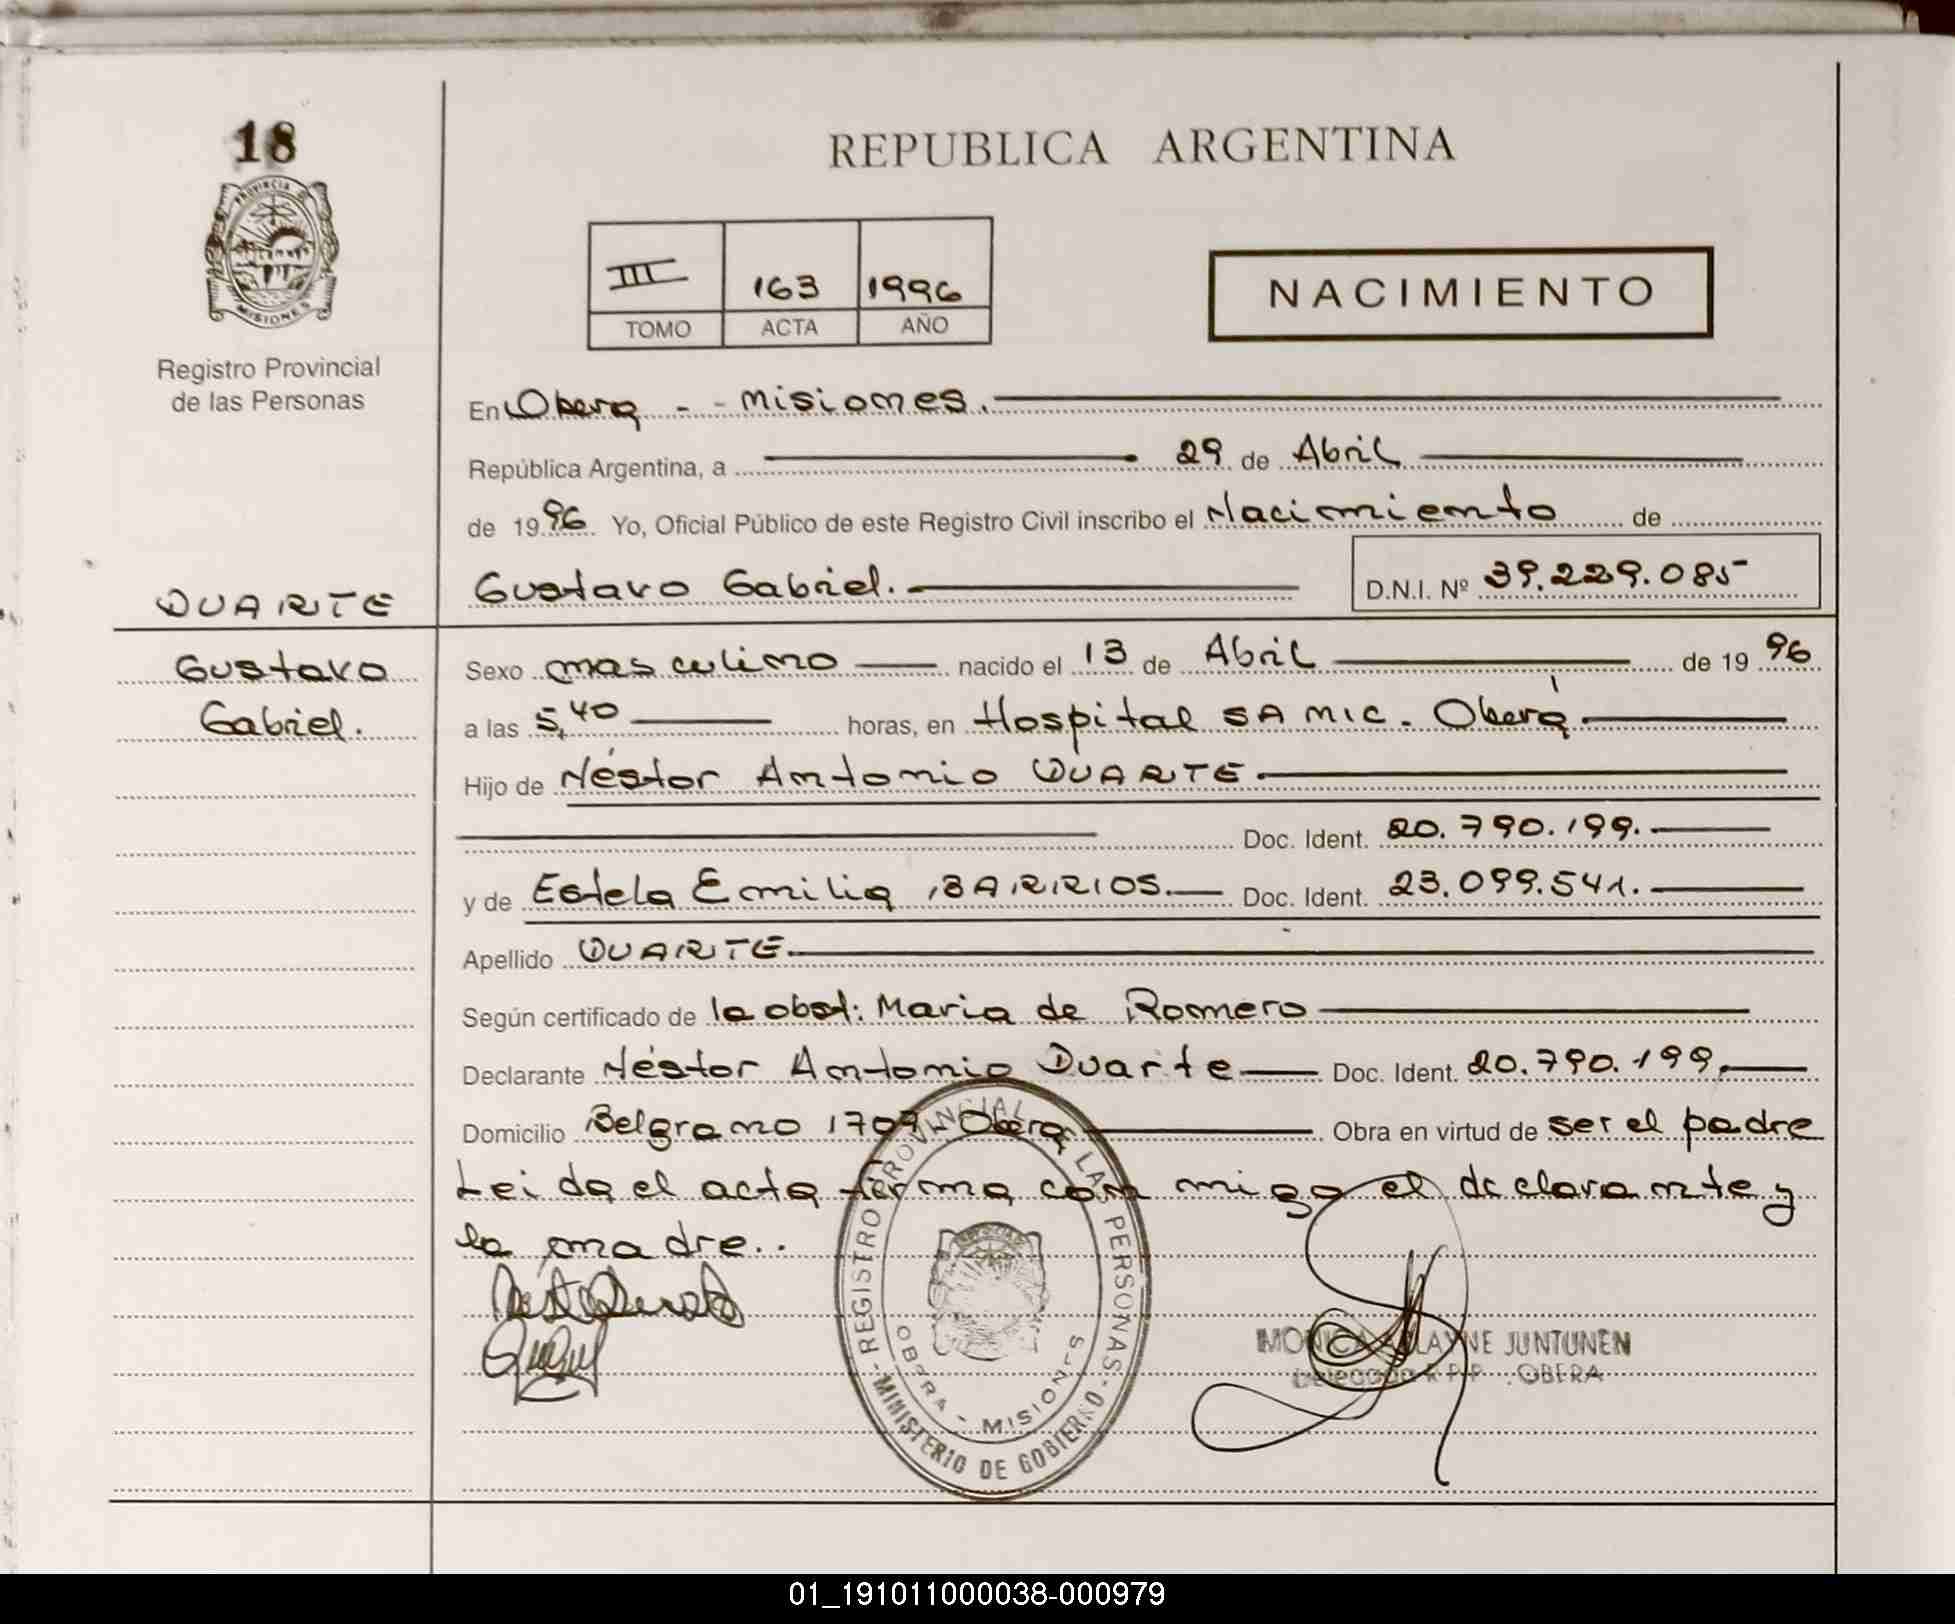 18
PROVINCIA DE
MISIONES
Registro Provincial
de las Personas
REPUBLICA ARGENTINA
III 163 1996
TOMO ACTA AÑO
NACIMIENTO
En Obera - - Misiones.
República Argentina, a 29 de Abril
de 1996 Yo, Oficial Público de este Registro Civil inscribo el Nacimiento de
DUARTE Gustavo Gabriel. D.N.I. Nº 39.229.085
Gustavo Sexo masculino nacido el 13 de Abril de 1996
Gabriel. a las 5,40 horas, en Hospital SAMIC. Oberá
Hijo de Néstor Antonio DUARTE
Doc. Ident. 20.790.199.
y de Estela Emilia BARRIOS. Doc. Ident. 23.099.541.
Apellido DUARTE
Según certificado de la obst: Maria de Romero
Declarante Néstor Antonio Duarte Doc. Ident. 20.790.199,
Domicilio Belgrano 1709 - Obera Obra en virtud de ser el padre
Leida el acta firma con migo el declarante y
la madre..
REGISTRO PROVINCIAL DE LAS PERSONAS
OBERA - MISIONES
MINISTERIO DE GOBIERNO
MONICA JUNTUNEN
Delegada R.P.P. OBERA
01_191011000038-000979